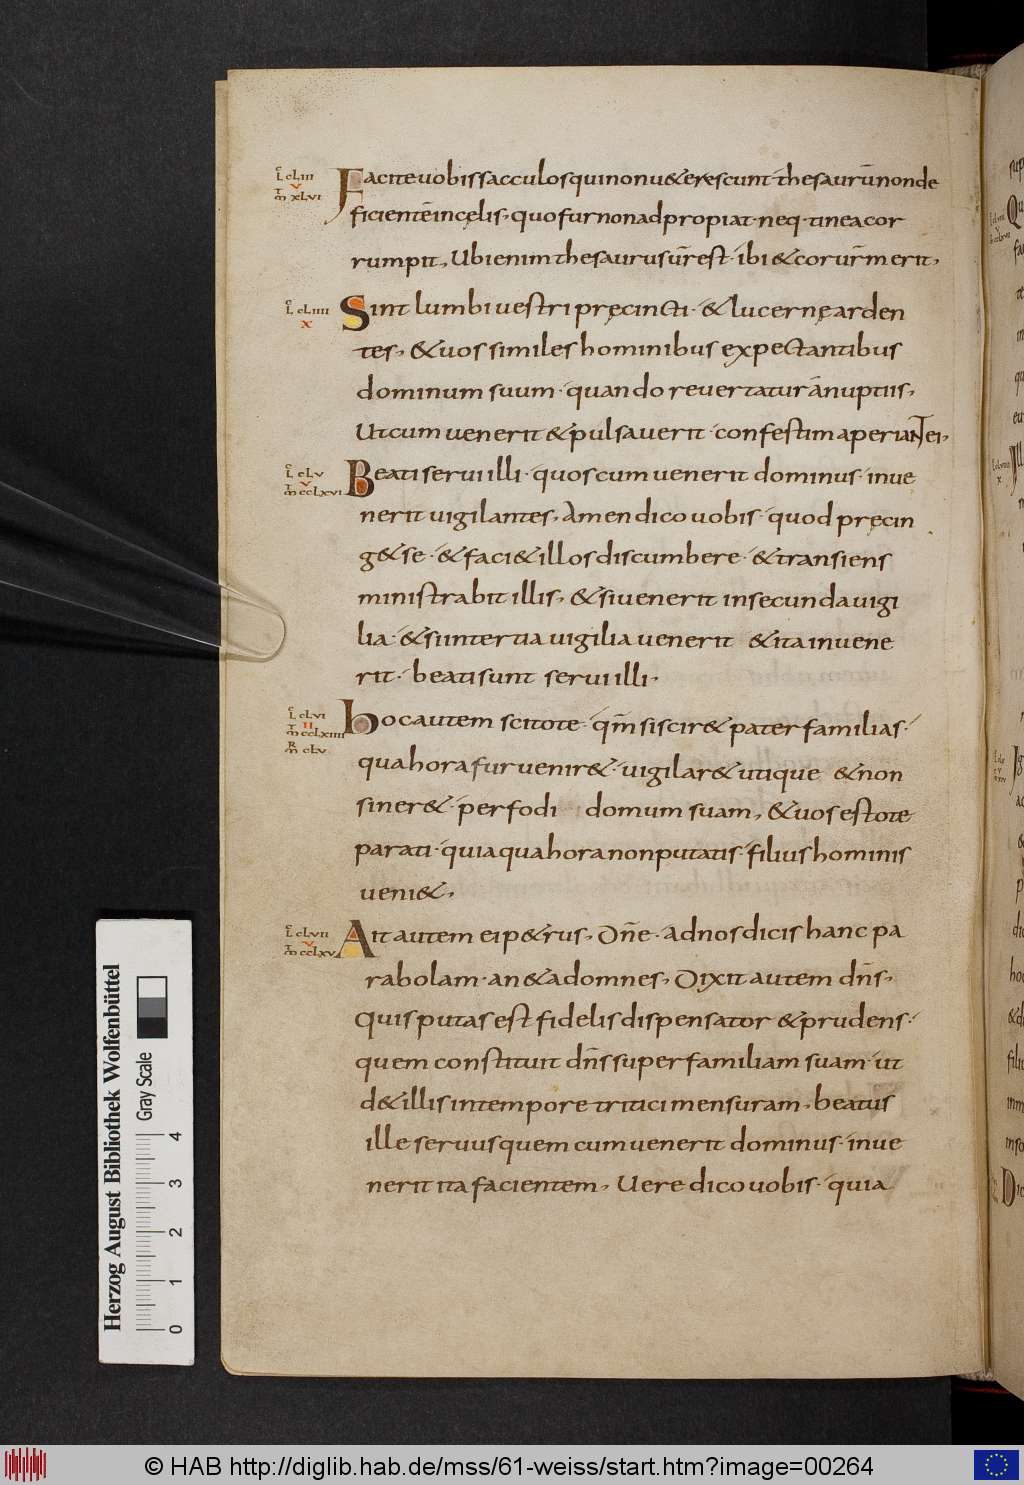 L CLIII
V
M XLVI
Facite vobis sacculos qui non vet&erescunt· thesaurū non de
ficientē in cęlis, quo fur non adpropiat· neq· tinea cor
rumpit, Ubi enim thesaurus ur̄ est· ibi & cor ur̄m erit,
L CLIIII
X
Sint lumbi vestri pręcincti· & lucernę arden
tes, & vos similes hominibus expectantibus
dominum suum· quando revertatur a nuptiis,
Ut cum venerit & pulsaverit· confestim aperiant ei,
L CLV
V
M CCLXVI
Beati servi illi· quos cum venerit dominus· inve
nerit vigilantes, Amen dico vobis· quod pręcin
g& se· & faci& illos discumbere· & transiens
ministrabit illis, & si venerit in secunda vigi
lia· & si in tertia vigilia venerit & ita invene
rit· beati sunt servi illi·
L CLVI
II
M CCLXIIII
M CLV
hoc autem scitote· qm̄ si scir& pater familias·
qua hora fur venir&· vigilar& utique & non
siner&· perfodi domum suam, & vos estote
parati· quia qua hora non putatis· filius hominis
veni&,
L CLVII
V
M CCLXV
Ait autem ei p&rus, Dn̄e· ad nos dicis hanc pa
rabolam· an & ad omnes, Dixit autem dn̄s,
Quis putas est fidelis dispensator & prudens·
quem constituit dn̄s super familiam suam· ut
d& illis in tempore tritici mensuram, beatus
ille servus quem cum venerit dominus· inve
nerit ita facientem, Vere dico vobis· quia
Herzog August Bibliothek Wolfenbüttel
Gray Scale
0 1 2 3 4
© HAB http://diglib.hab.de/mss/61-weiss/start.htm?image=00264